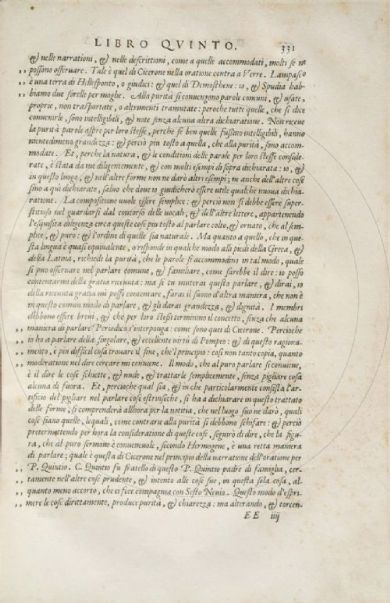 LIBRO QVINTO. 331
& nelle narrationi, & nelle descrittioni, come a quelle accommodati, molti se ne
possono osseruare. Tale è quel di Cicerone nella oratione contra a Verre. Lampasco
è una terra di Hellesponto, o giudici: & quel di Demosthene: io, & Spudia hab-
biamo due sorelle per moglie. Alla purità si conuengono parole comuni, & usate,
proprie, non trasportate, o altrimenti tramutate: perche tutte quelle, che si dice
conuenirle, sono intelligibili, & note senza alcuna altra dichiaratione. Non riceue
la purità parole aspre per loro stesse, perche se ben quelle fussino intelligibili, hanno
nientedimeno grandezza: & perciò piu tosto a quella, che alla purità, sono accom-
modate. Et, perche la natura, & le conditioni delle parole per loro stesse conside-
rate, è stata da me diligentemente, & con molti esempi di sopra dichiarata: io, &
in questo luogo, & nell'altre forme non ne darò altri esempi: ne anche dell'altre cose
sino a qui dichiarate, saluo che doue io giudicherò essere utile qualche nuoua dichia-
ratione. La compositione uuole essere semplice: & perciò non si debbe essere super-
stitioso nel guardarsi dal concorso delle uocali, & dell'altre lettere, appartenendo
l'esquisita diligenza circa queste cose piu tosto al parlare colto, & ornato, che al sem-
plice, & puro: & l'ordine di quelle sia naturale. Ma quanto a quello, che in que-
sta lingua è quasi equiualente, o risponde in qualche modo alli piedi della Greca, &
della Latina, richiedi la purità, che le parole si accommodino in tal modo, quale
si può osseruare nel parlare comune, & familiare, come sarebbe il dire: io posso
contentarmi della gratia riceuuta: ma se tu muterai questo parlare, & dirai, io
della riceuuta gratia mi posso contentare, farai il suono d'altra maniera, che non è
in questo comun modo di parlare, & gli darai grandezza, & dignità. I membri
debbono essere breui, & che per loro stessi terminino il concetto, sinza che alcuna
maniera di parlare Periodica s'interponga: come sono quei di Cicerone. Percioche
io ho a parlare della singolare, & eccellente uirtù di Pompeo: & di questo ragiona-
mento, è piu difficil cosa trouare il fine, che l'principio: cosi non tanto copia, quanto
moderatione nel dire cercare mi conuiene. Il modo, che al puro parlare si conuiene,
è il dire le cose schiette, & nude, & trattarle semplicemente, sinza pigliare cosa
alcuna di fuora. Et, percioche qual sia, & in che particolarmente consista l'arti-
ficio del pigliare nel parlare cose estrinseche, si ha a dichiarare in questo trattato
delle forme, si comprenderà allhora per la notitia, che nel luogo suo ne darò, quali
cose siano quelle, lequali, come contrarie alla purità si debbono schifare: & perciò
pretermettendo per hora la consideratione di queste cose, seguirò di dire, che la figu-
ra, che al puro sermone è conueneuole, secondo Hermogene, è una retta maniera
di parlare: quale è questa di Cicerone nel principio della narratione dell'oratione per
P. Quintio. C. Quintio fu fratello di questo P. Quintio padre di famiglia, cer-
tamente nell'altre cose prudente, & intento alle cose sue, in questa sola cosa, al-
quanto meno accorto, che ei fece compagnia con Sesto Neuio. Questo modo d'espri-
mere le cose direttamente, produce purità, & chiarezza: ma alterando, & torcen-
EE iiij